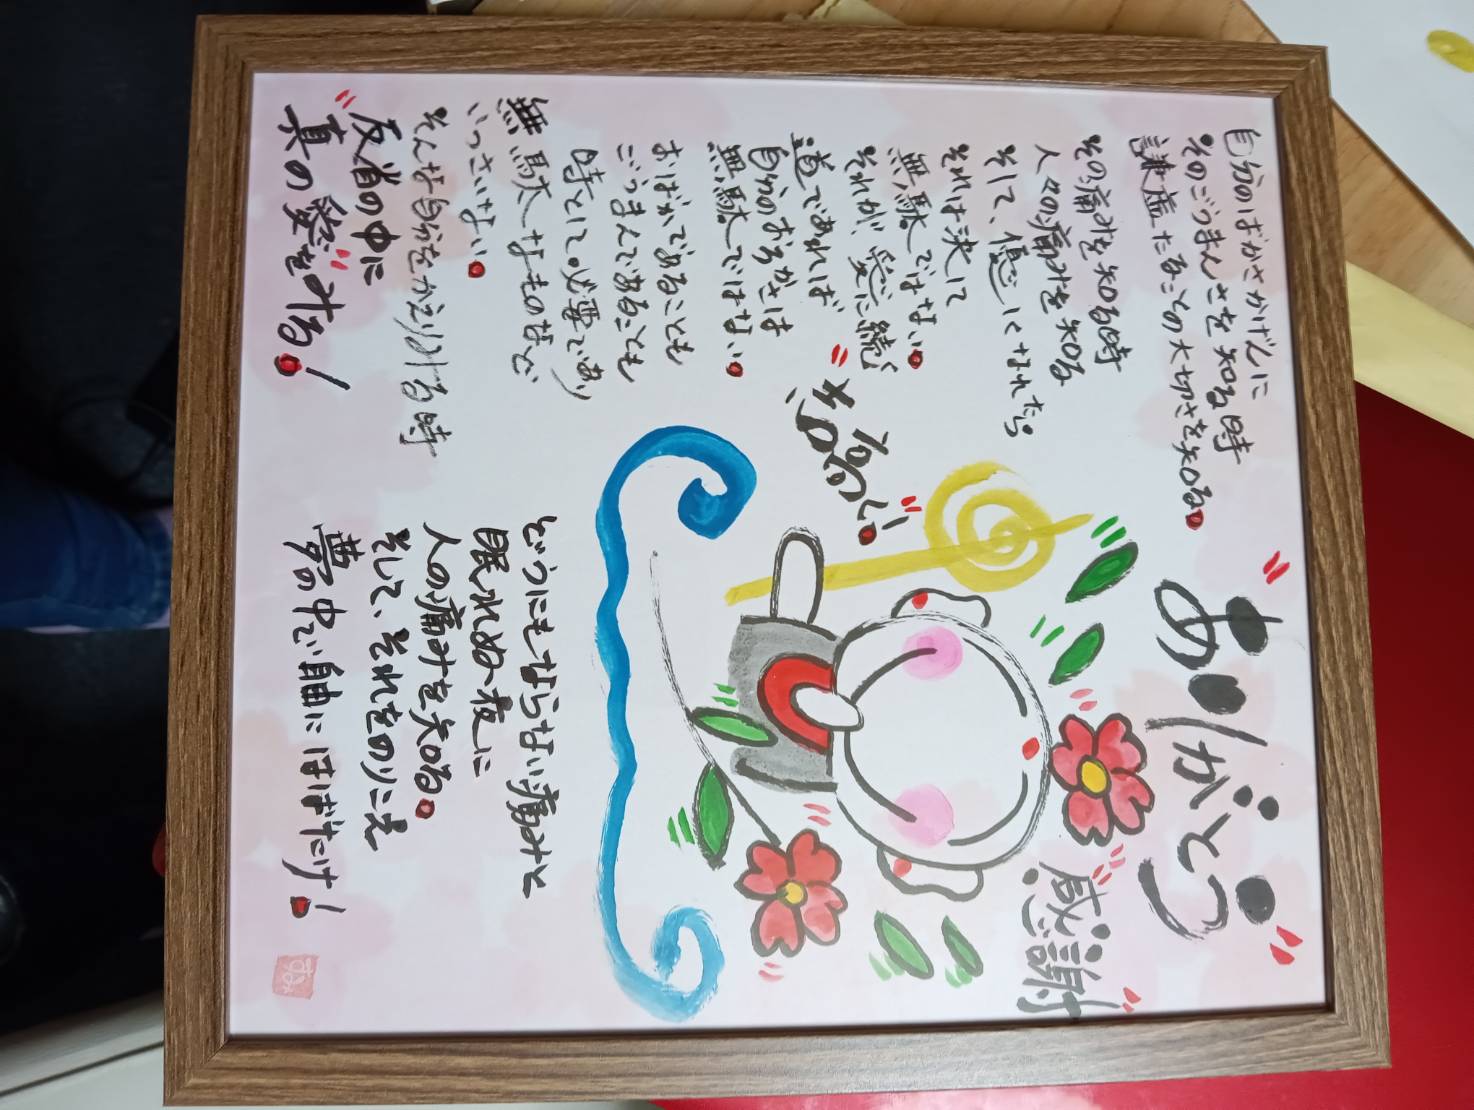 ありがとう
感謝
自分のばかさかげんに
そのごうまんさを知る時
謙虚たることの大切さを知る。
その痛みを知る時
人々の痛みを知る
そして、優しくなれたら
それは決して
無駄ではない。
それが愛に続く
道であれば
自分のおろかさは
無駄ではない。
おばかであることも
ごうまんであることも
時として必要であり
無駄なものなど
いっさいない。
そんな自分をかえりみる時
反省の中に
真の愛をみる!
志高く!
どうにもならない痛みと
眠れぬ夜に
人の痛みを知る。
そして、それをのりこえ
夢の中で自由にはばたけ!